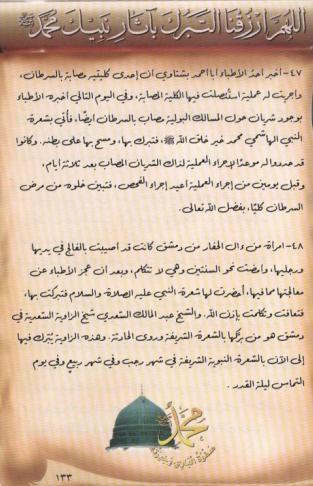 اللهم ارزقنا التبرك بآثار نبيك محمد ﷺ
٤٧- أخبر أحدُ الأطباء أبا أحمد بشناوي أن إحدى كليتيه مصابة بالسرطان،
وأجريت له عملية استُئصلت فيها الكلية المصابة، وفي اليوم التالي أخبره الأطباء
بوجود شريان حول المسالك البولية مصاب بالسرطان أيضًا، فأتي بشعرة
النبي الهاشمي محمد خير خلق الله ﷺ، فتبرك بها، ومسح بها على بطنه. وكانوا
قد حددوا له موعدًا لإجراء العملية لذلك الشريان المصاب بعد ثلاثة أيام،
وقبل يومين من إجراء العملية أعيد إجراء الفحص، فتبين خلوه من مرض
السرطان كليًا، بفضل الله تعالى.
٤٨- امرأة من دال الحفار من دمشق كانت قد أصيبت بالفالج في يديها
ورجليها، وأمضت نحو السنتين وهي لا تتكلم، وبعد أن عجز الأطباء عن
معالجتها مما فيها، أحضرت لها شعرة النبي عليه الصلاة والسلام فتبركت بها،
فتعافت وتكلمت بإذن الله. والشيخ عبد المالك السعدي شيخ الزاوية السعدية في
دمشق هو من بركها بالشعرة الشريفة وروى الحادثة. وهذه الزاوية يُتبرك فيها
إلى الآن بالشعرة النبوية الشريفة في شهر رجب وفي شهر ربيع وفي يوم
التماس ليلة القدر.
محمد
١٣٣